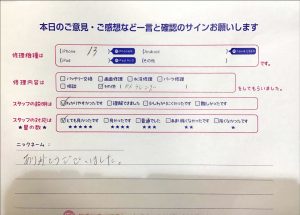 本日のご意見・ご感想など一言と確認のサインお願いします
修理機種は
iPhone 13 Android
iPad その他
修理内容は
バッテリー交換 画面修理 水没修理 パーツ修理
相談 その他
をしてもらいました。
スタッフの説明は
わかりやすかったです 理解できました 少しわかりにくかったです 難しかったです
スタッフの対応は
★星の数★
とても良かったです 良かったです 普通でした あまり良くなかったです 良くなかったです
★★★★★ ★★★★ ★★★ ★★ ★
ニックネーム:
ありがとうございました。